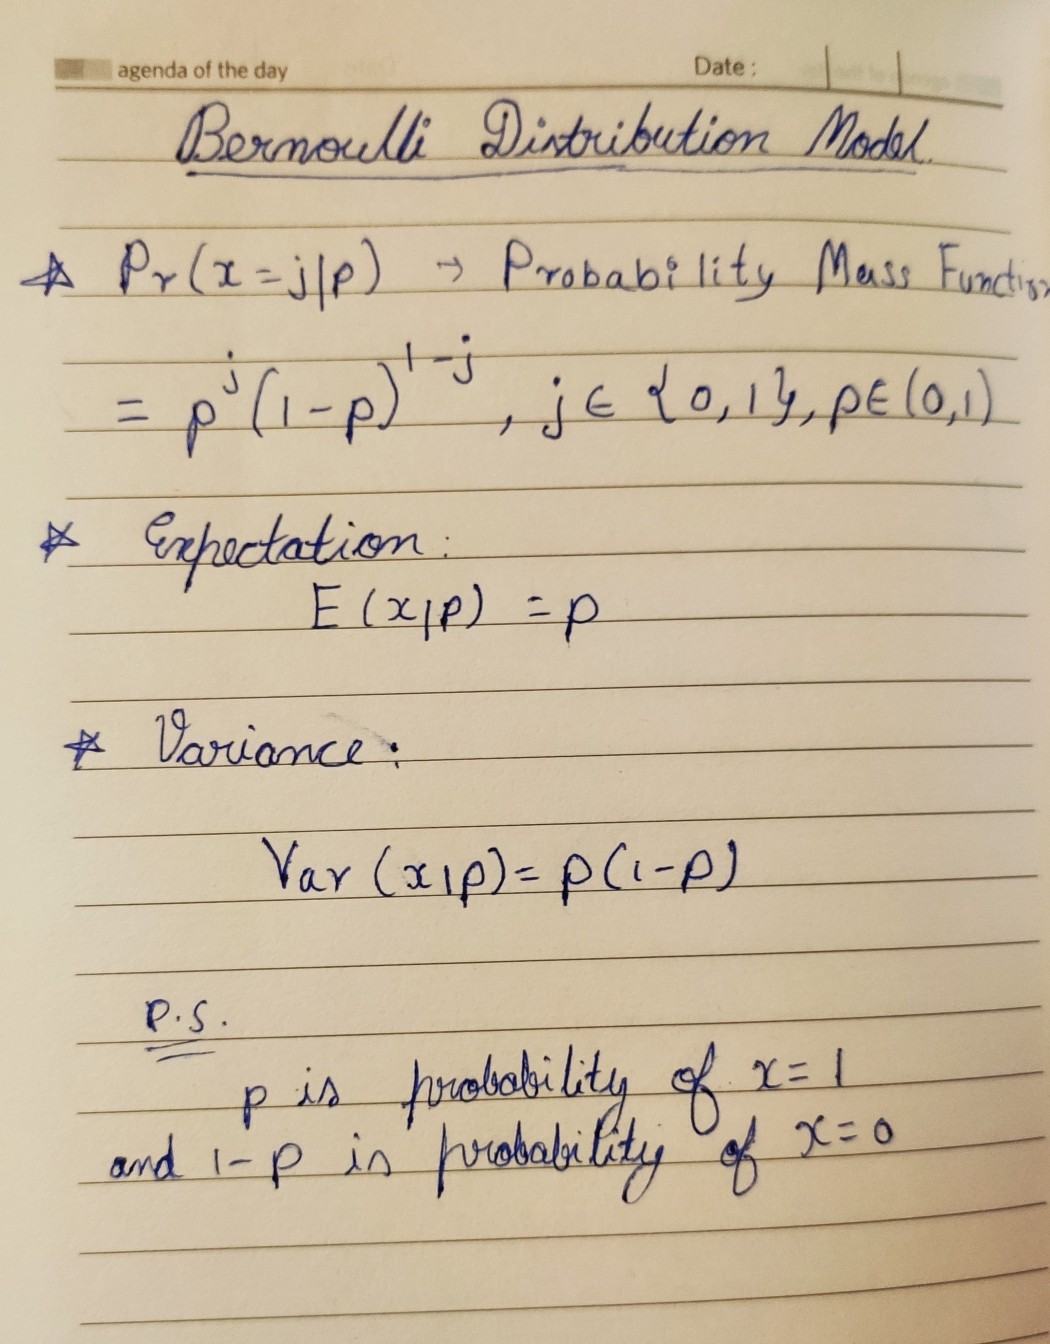 agenda of the day Date :
Bernoulli Distribution Model.
☆ Pr(x=j|p) → Probability Mass Function
= p^j(1-p)^1-j, j∈{0,1}, p∈(0,1)
☆ Expectation:
E(x|p) = p
☆ Variance:
Var(x|p) = p(1-p)
P.S.
p is probability of x=1
and 1-p is probability of x=0